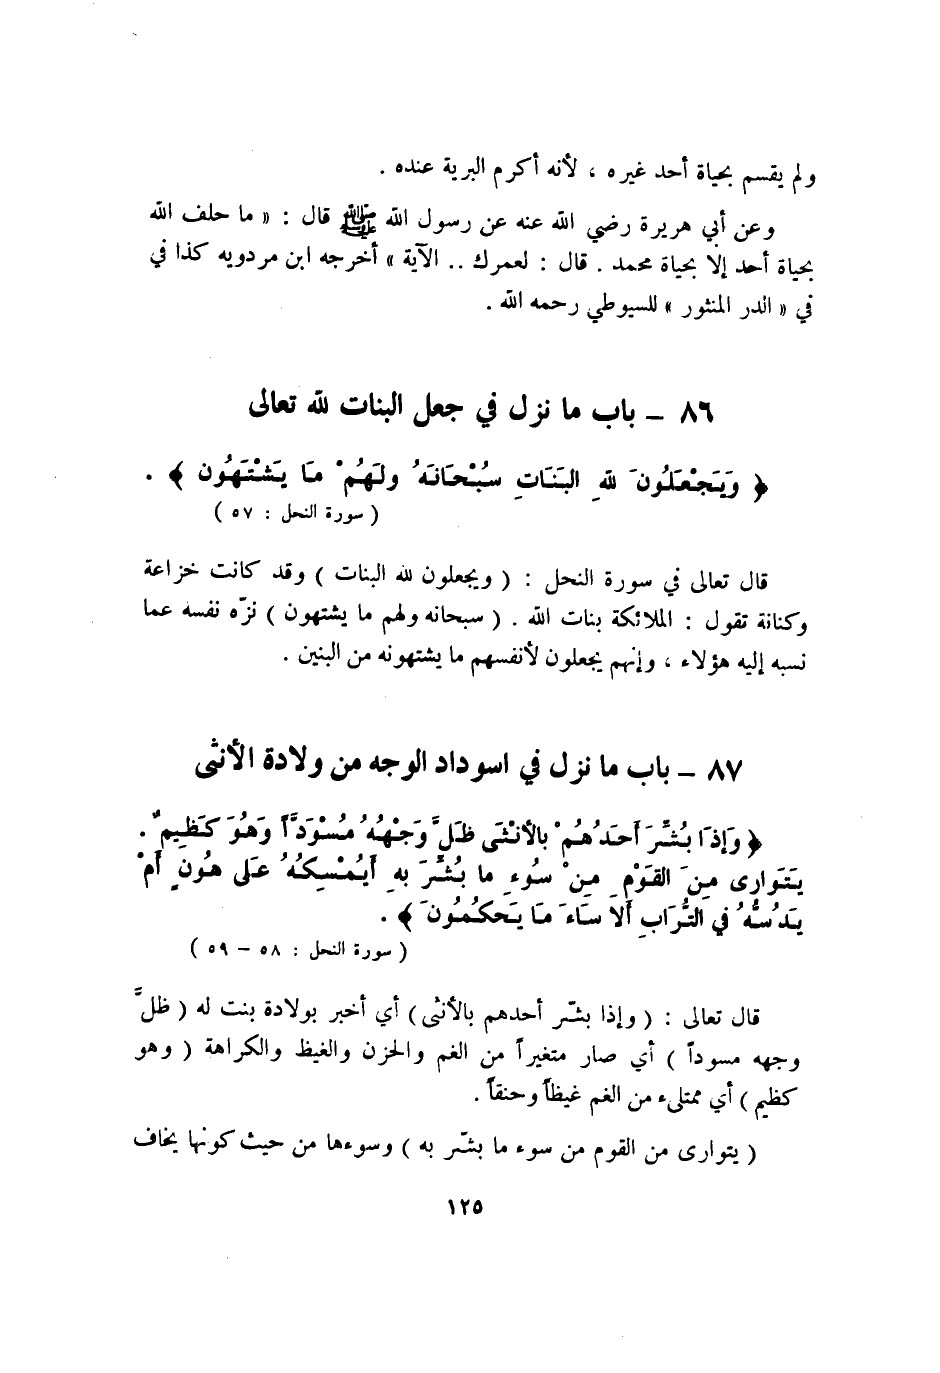 ولم يقسم بحياة أحد غيره ، لأنه أكرم البرية عنده .
وعن أبي هريرة رضي الله عنه عن رسول الله ﷺ قال : « ما حلف الله
بحياة أحد إلا بحياة محمد . قال : لعمرك .. الآية » أخرجه ابن مردويه كذا في
في « الدر المنثور » للسيوطي رحمه الله .
٨٦ ــ باب ما نزل في جعل البنات لله تعالى
﴿ وَيَجْعَلُونَ للهِ البَنَاتِ سُبْحَانَهُ ولَهُمْ مَا يَشْتَهُون ﴾ .
( سورة النحل : ٥٧ )
قال تعالى في سورة النحل : ( ويجعلون لله البنات ) وقد كانت خزاعة
وكنانة تقول : الملائكة بنات الله . ( سبحانه ولهم ما يشتهون ) نزّه نفسه عما
نسبه إليه هؤلاء ، وإنهم يجعلون لأنفسهم ما يشتهونه من البنين .
٨٧ ــ باب ما نزل في اسوداد الوجه من ولادة الأنثى
﴿ وَإِذَا بُشِّرَ أَحَدُهُمْ بالأنْثَى ظَلَّ وَجْهُهُ مُسْوَدَّاً وَهُوَ كَظِيمٌ .
يَتَوارى مِنَ القَوْمِ مِنْ سُوءِ ما بُشِّرَ بهِ أَيُمْسِكُهُ عَلى هُونٍ أَمْ
يَدُسُّهُ في التُّرَابِ ألَا سَاءَ مَا يَحكُمُونَ ﴾ .
( سورة النحل : ٥٨ – ٥٩ )
قال تعالى : ( وإذا بشّر أحدهم بالأنثى ) أي أخبر بولادة بنت له ( ظلَّ
وجهه مسوداً ) أي صار متغيراً من الغم والحزن والغيظ والكراهة ( وهو
كظيم ) أي ممتلىء من الغم غيظاً وحنقاً .
( يتوارى من القوم من سوء ما بشّر به ) وسوءها من حيث كونها يخاف
١٢٥